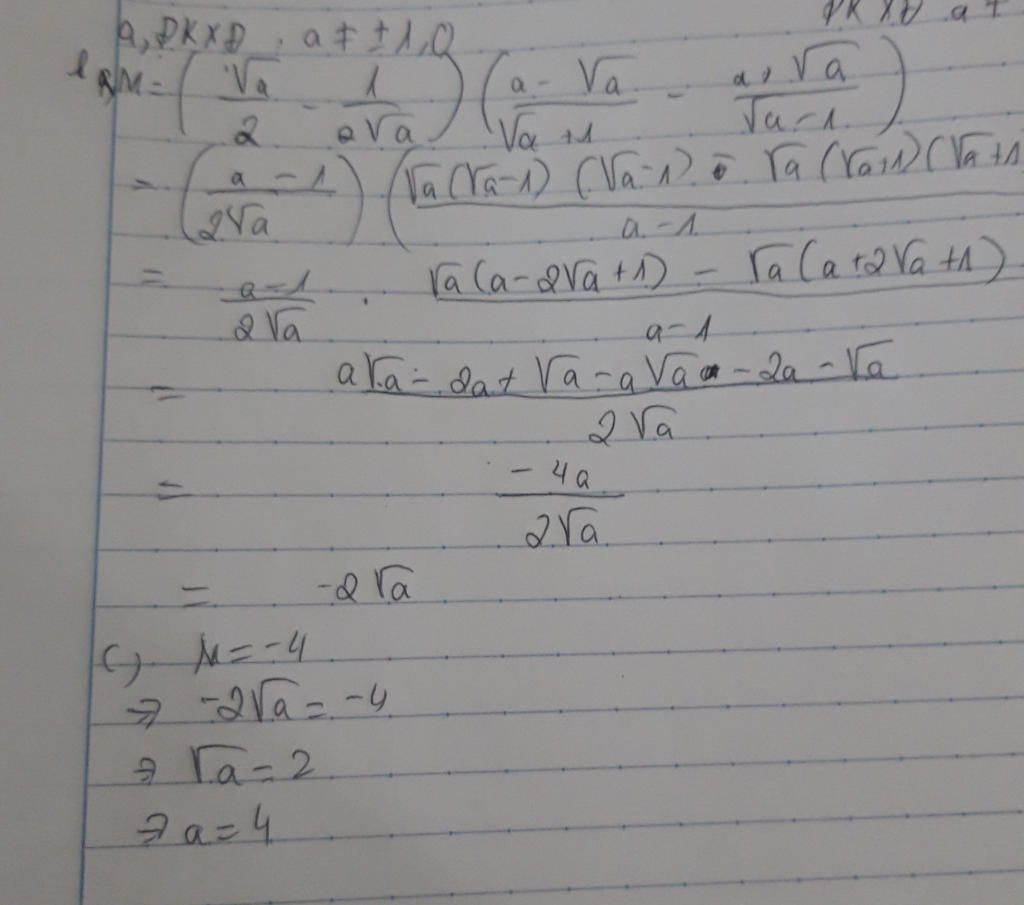 ĐK XĐ a ≠
a, ĐKXĐ : a ≠ ±1, 0
b, M = (√a/2 - 1/(2√a)) ((a - √a)/(√a + 1) - (a + √a)/(√a - 1))
= ((a - 1)/(2√a)) ((√a(√a-1) (√a-1) - √a (√a+1)(√a+1)/(a-1)
= (a-1)/(2√a) . (√a(a-2√a+1) - √a(a+2√a+1))/(a-1)
= (a√a - 2a + √a - a√a - 2a - √a)/(2√a)
= (-4a)/(2√a)
= -2√a
c, M = -4
⇒ -2√a = -4
⇒ √a = 2
⇒ a = 4